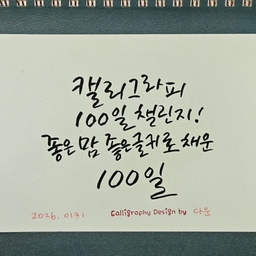 캘리그라피
100일 챌린지!
좋은 맘 좋은 글귀로 채운
100일
2026. 0131
Calligraphy Design by 다운